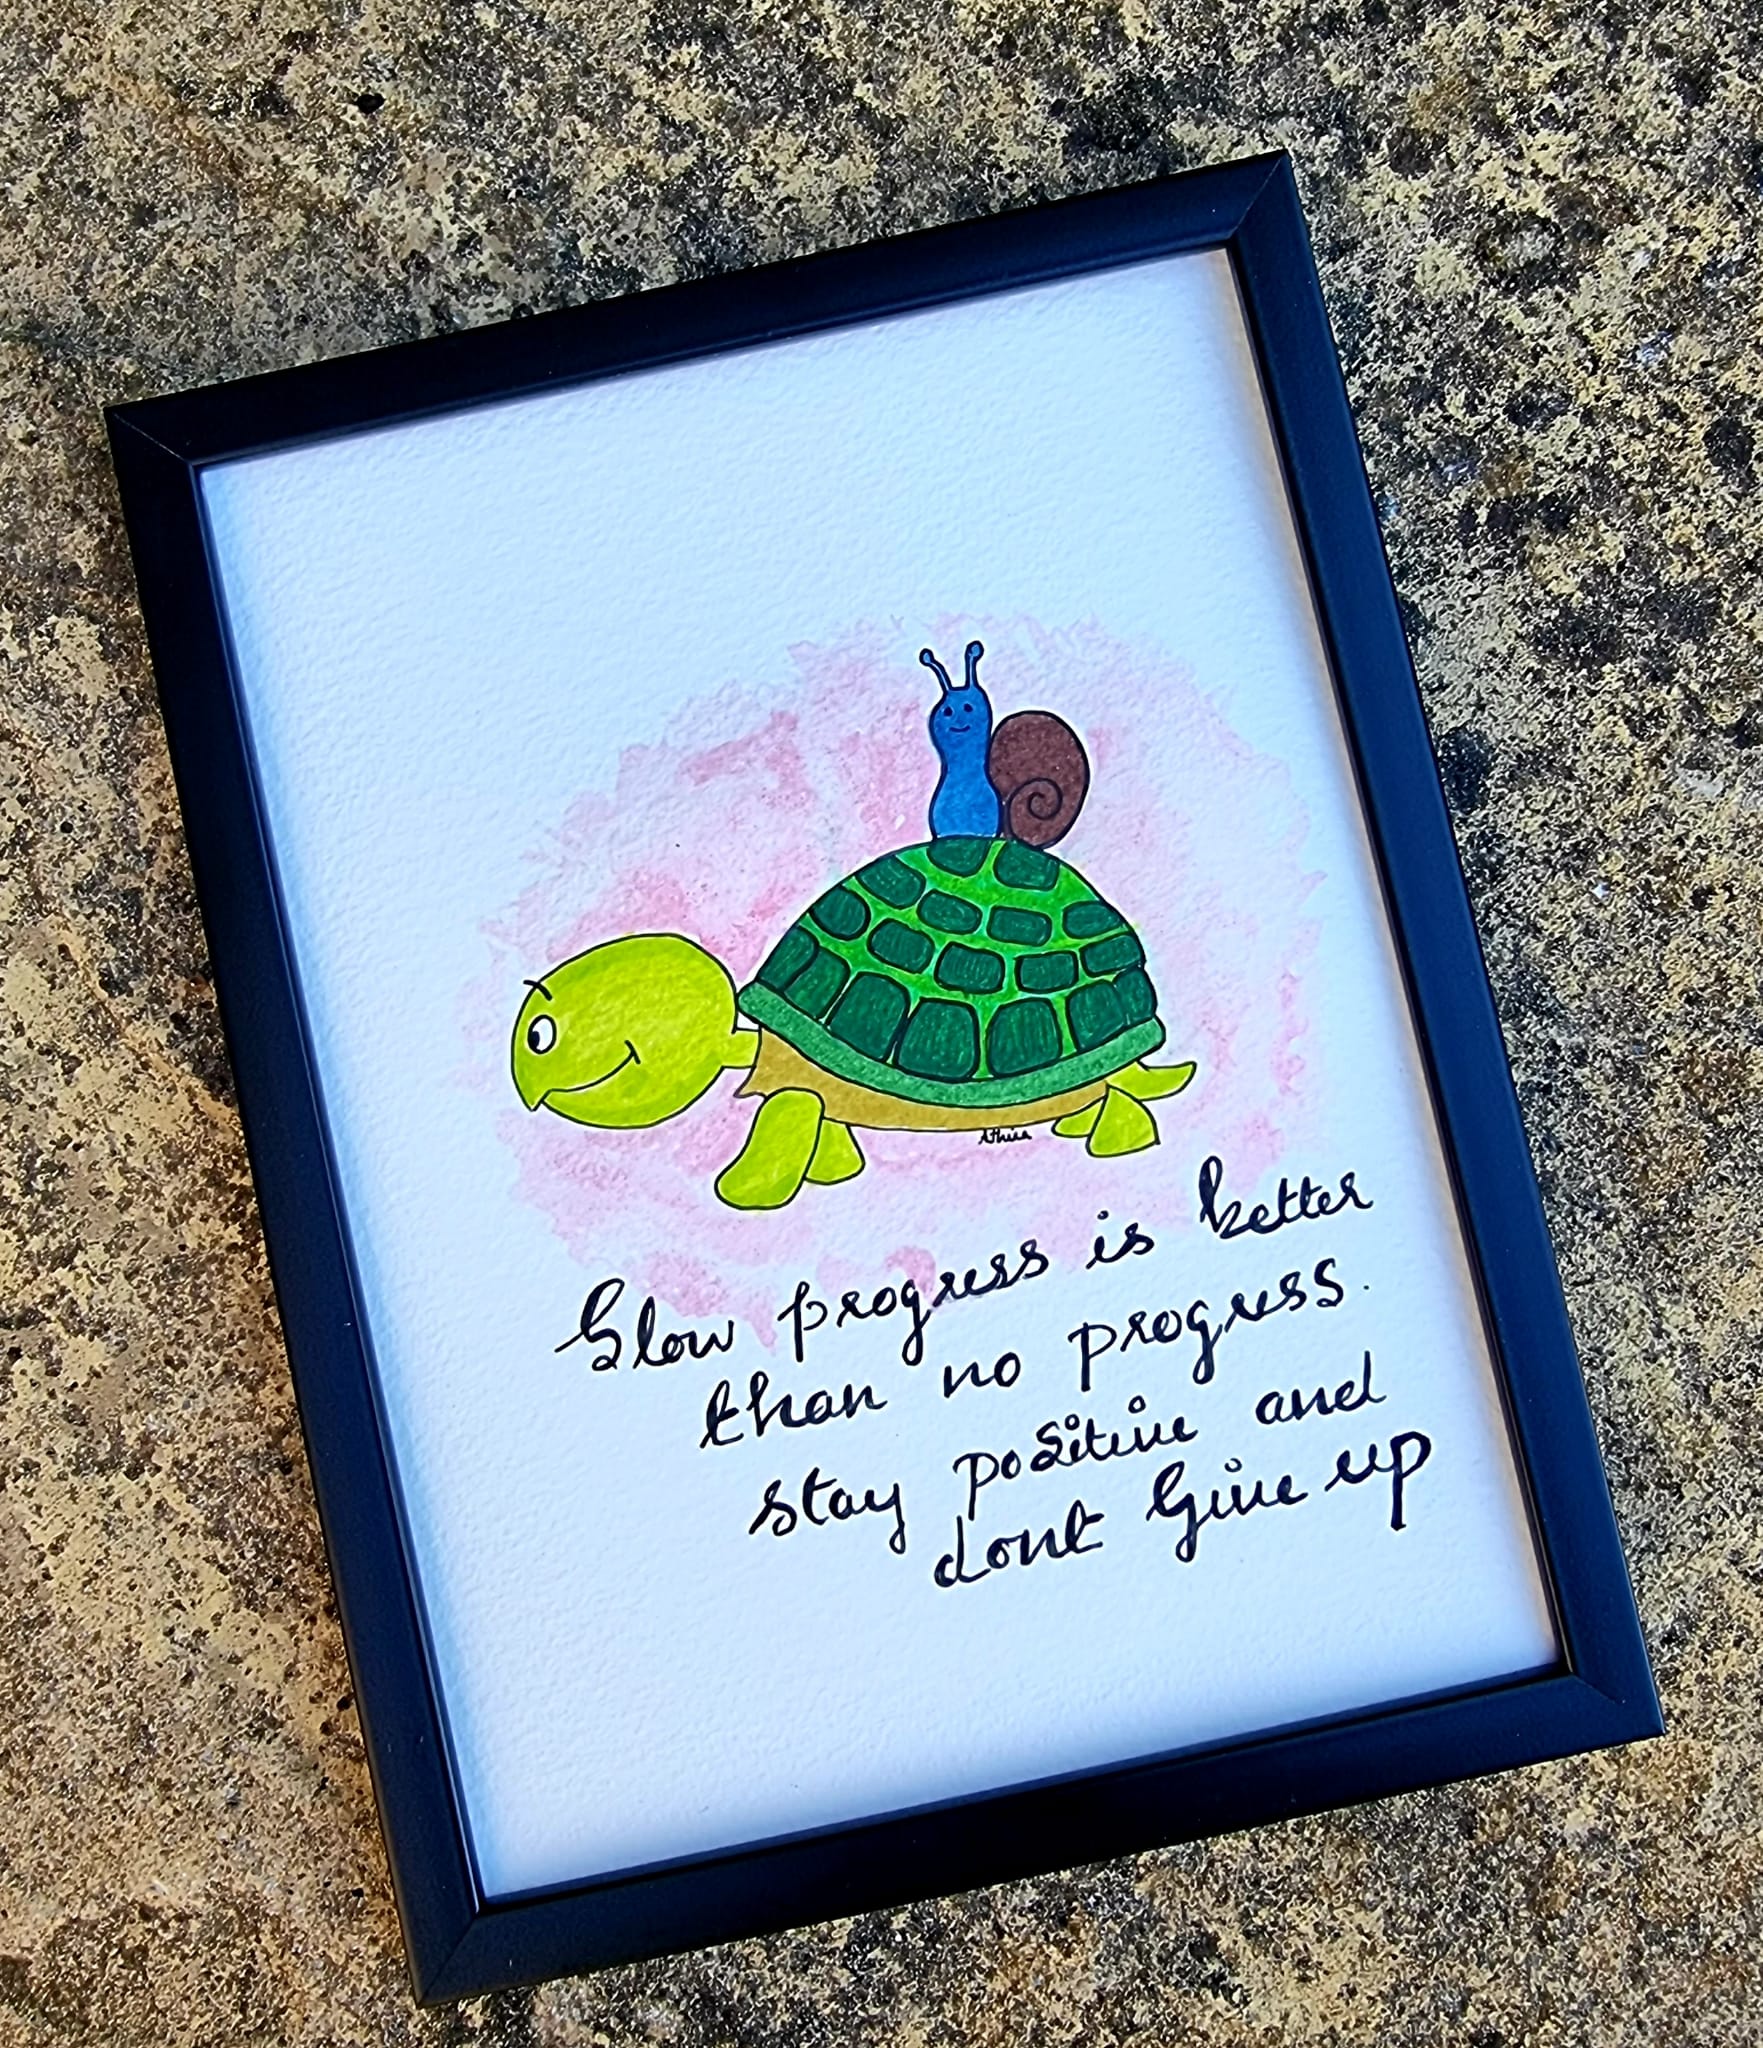 Athira
Slow progress is better
than no progress.
stay positive and
dont Give up